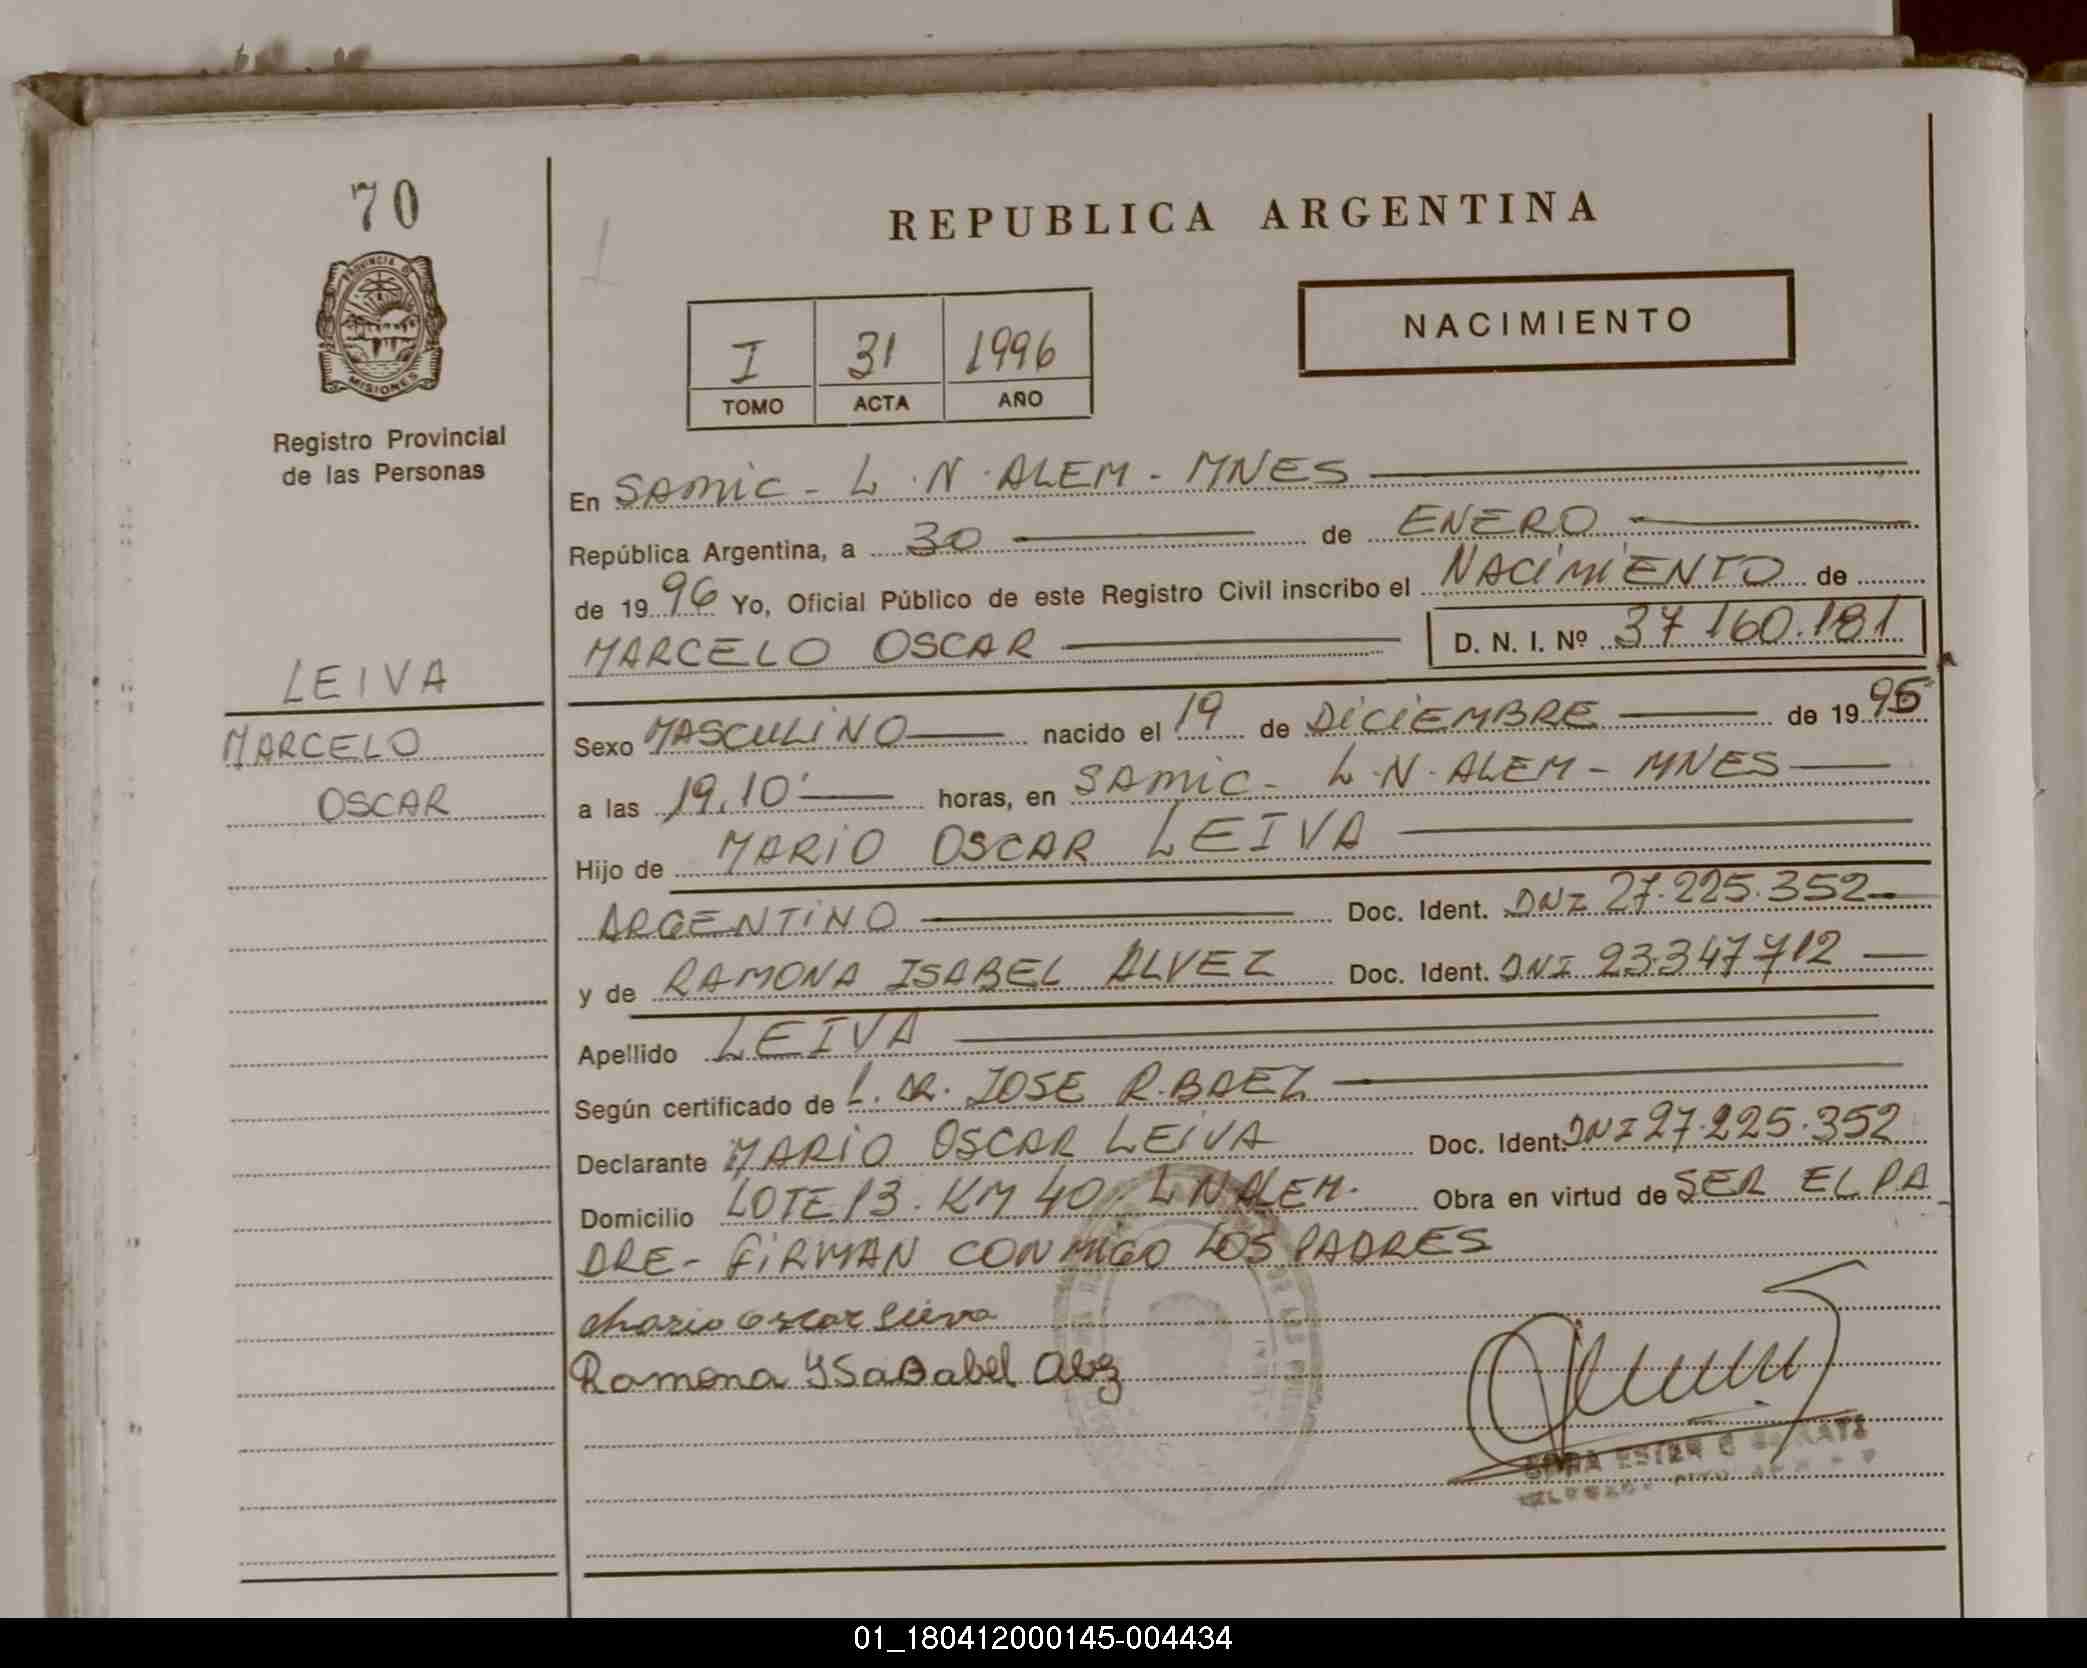 70
PROVINCIA DE
MISIONES
Registro Provincial
de las Personas
LEIVA
MARCELO
OSCAR
REPUBLICA ARGENTINA
I 31 1996
TOMO ACTA AÑO
NACIMIENTO
En SAMIC - L.N.ALEM - MNES
República Argentina, a 30 de ENERO
de 1996 Yo, Oficial Público de este Registro Civil inscribo el NACIMIENTO de
MARCELO OSCAR D. N. I. Nº 37.160.181
Sexo MASCULINO nacido el 19 de DICIEMBRE de 1995
a las 19,10' horas, en SAMIC - L.N.ALEM - MNES
Hijo de MARIO OSCAR LEIVA
ARGENTINO Doc. Ident. DNI 27.225.352
y de RAMONA ISABEL ALVEZ Doc. Ident. DNI 23.347.712
Apellido LEIVA
Según certificado de JOSE R. BAEZ
Declarante MARIO OSCAR LEIVA Doc. Ident. DNI 27.225.352
Domicilio LOTE 13. KM 40. L N ALEM. Obra en virtud de SER EL PA
DRE - FIRMAN CONMIGO LOS PADRES
Mario oscar Leiva
Ramona YSaBabel
ESTER
01_180412000145-004434